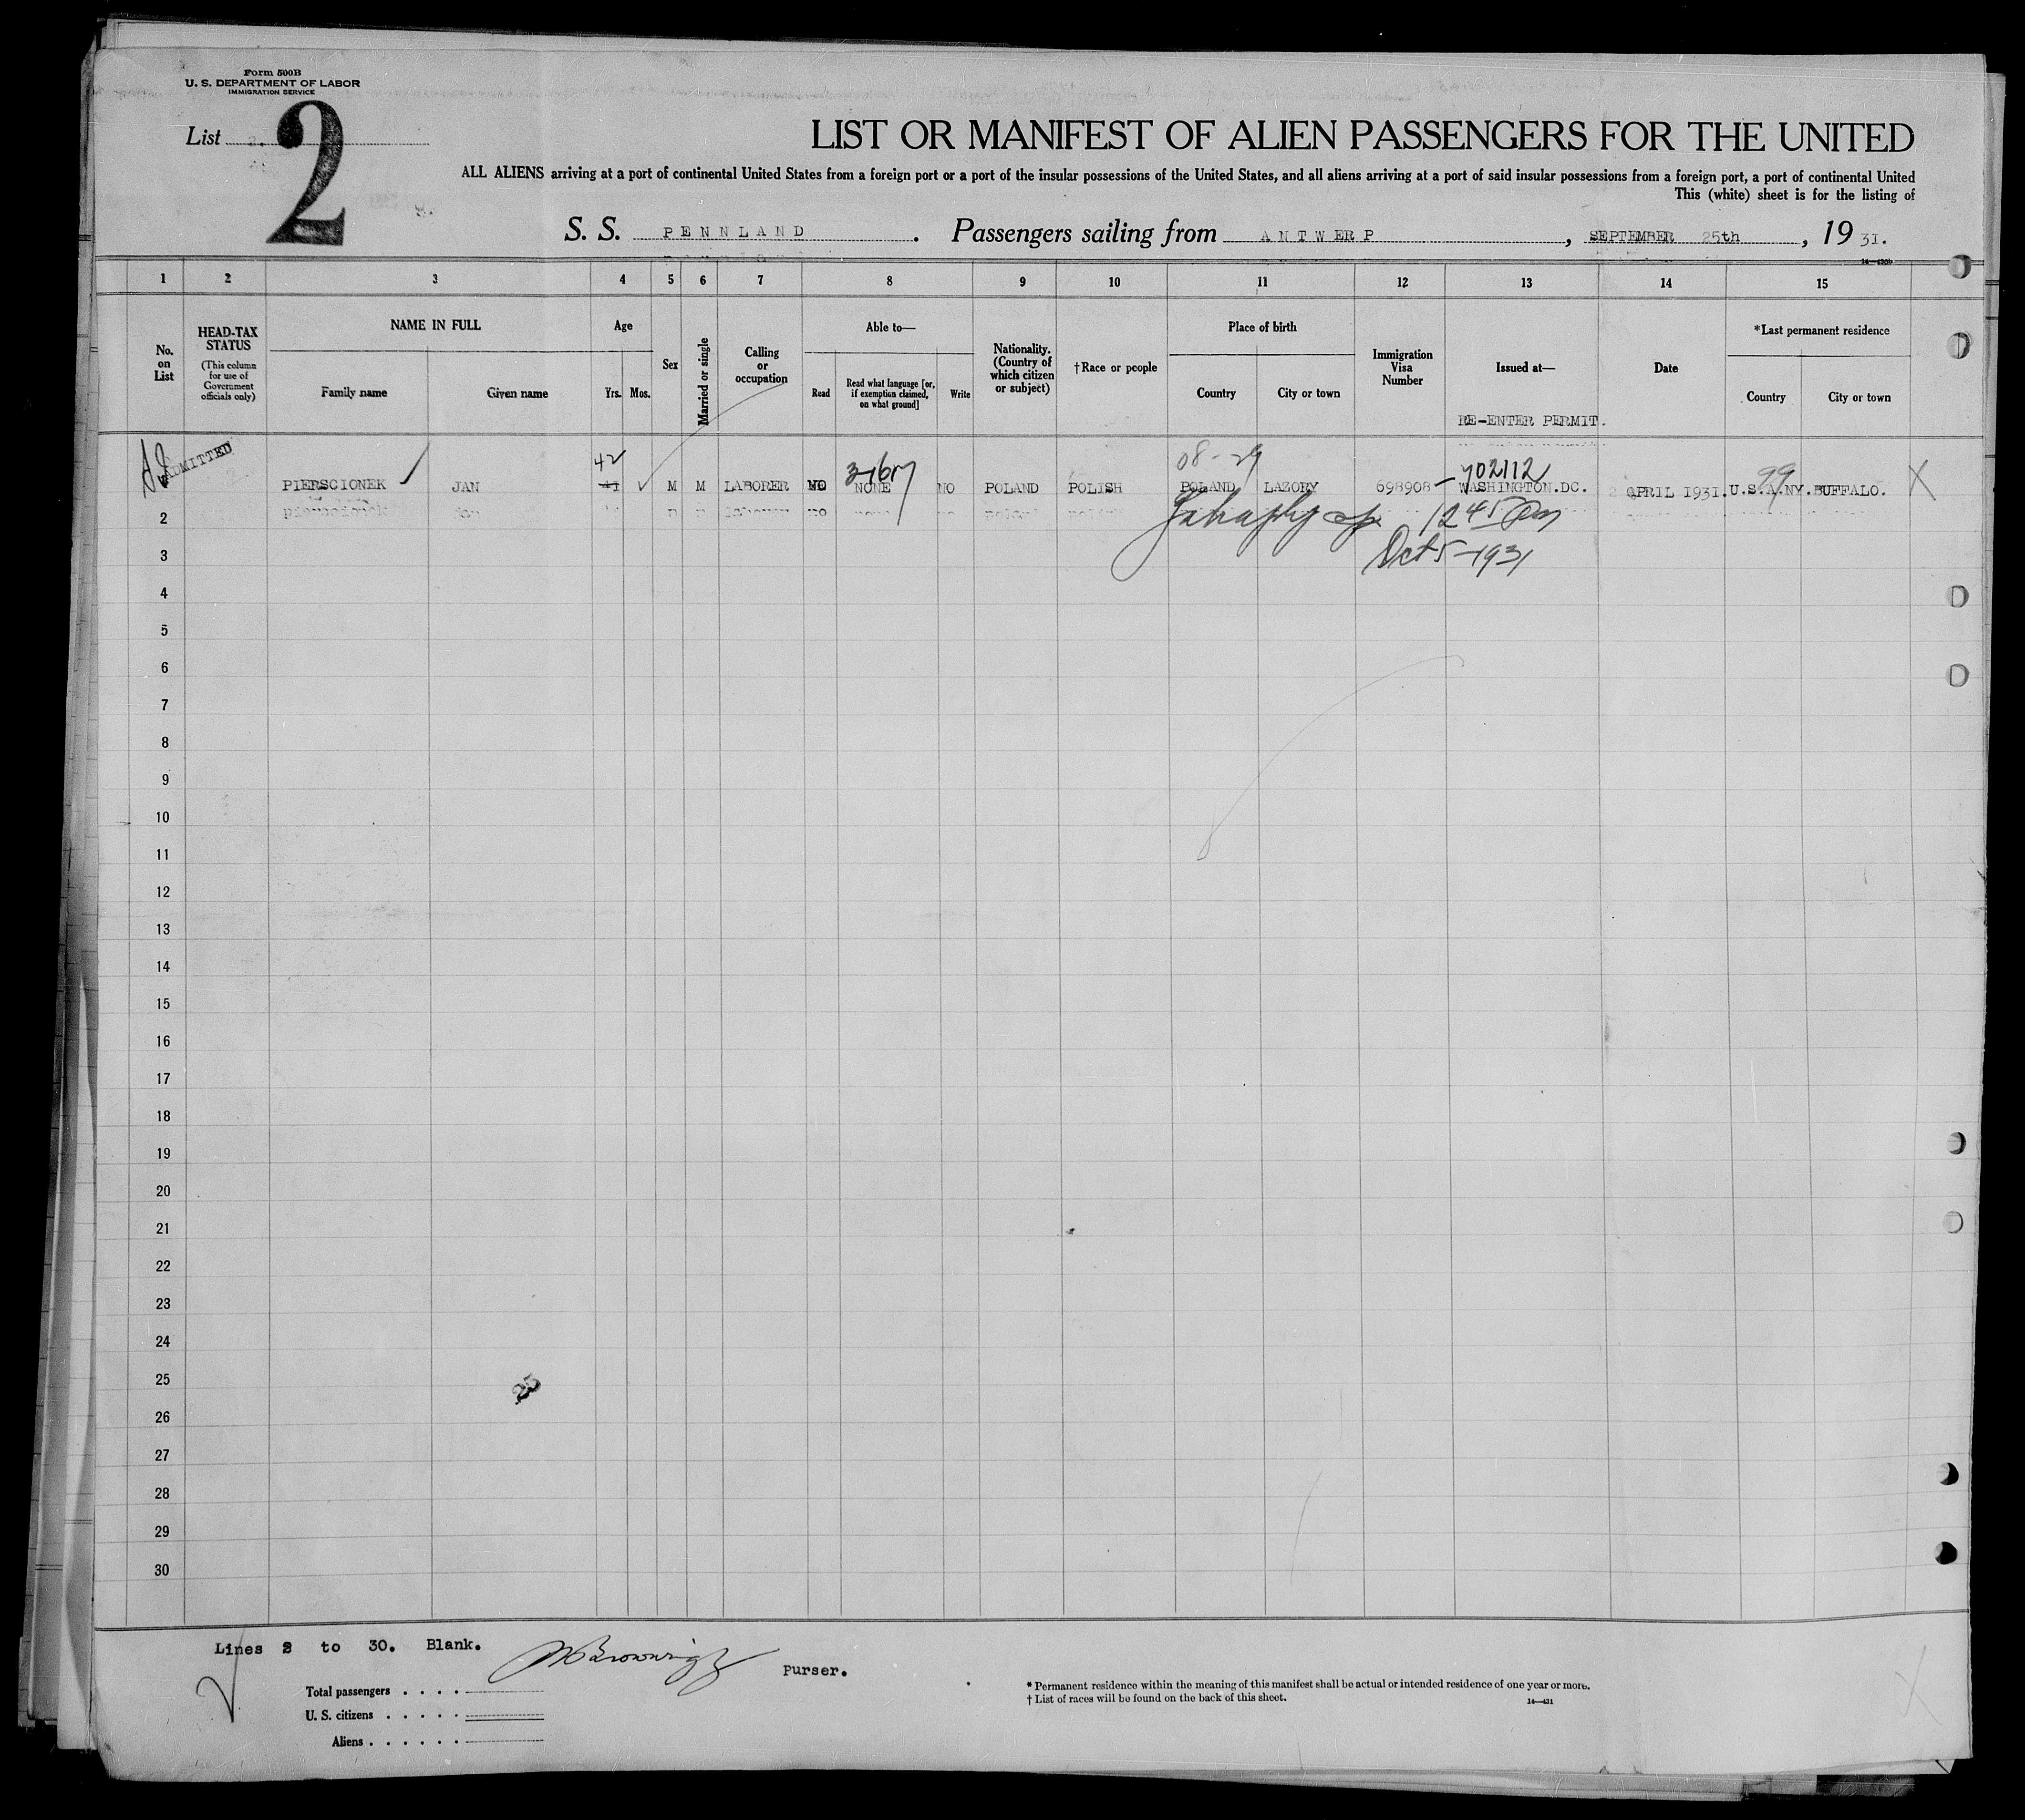 Form 500B
U. S. DEPARTMENT OF LABOR
IMMIGRATION SERVICE
List 2.
2
LIST OR MANIFEST OF ALIEN PASSENGERS FOR THE UNITED
ALL ALIENS arriving at a port of continental United States from a foreign port or a port of the insular possessions of the United States, and all aliens arriving at a port of said insular possessions from a foreign port, a port of continental United
This (white) sheet is for the listing of
S. S. PENNLAND. Passengers sailing from ANTWERP, SEPTEMBER 25th, 1931.
1 2 3 4 5 6 7 8 9 10 11 12 13 14 15
No. on List
HEAD-TAX STATUS
(This column for use of Government officials only)
NAME IN FULL
Family name
Given name
Age
Yrs. Mos.
Sex
Married or single
Calling or occupation
Able to—
Read
Read what language [or, if exemption claimed, on what ground]
Write
Nationality. (Country of which citizen or subject)
†Race or people
Place of birth
Country
City or town
Immigration Visa Number
Issued at—
RE-ENTER PERMIT.
Date
*Last permanent residence
Country
City or town
ADMITTED
42 08-29 702112 99
PIERSCIONEK JAN 41 M M LABORER NO NONE NO POLAND POLISH POLAND LAZORY 698908 WASHINGTON.DC. 2 APRIL 1931. U.S.A. NY. BUFFALO. X
1245 Pm
Oct 5-1931
2
3
4
5
6
7
8
9
10
11
12
13
14
15
16
17
18
19
20
21
22
23
24
25
26
27
28
29
30
Lines 2 to 30. Blank.
Purser.
Total passengers
U. S. citizens
Aliens
* Permanent residence within the meaning of this manifest shall be actual or intended residence of one year or more.
† List of races will be found on the back of this sheet.
14—431